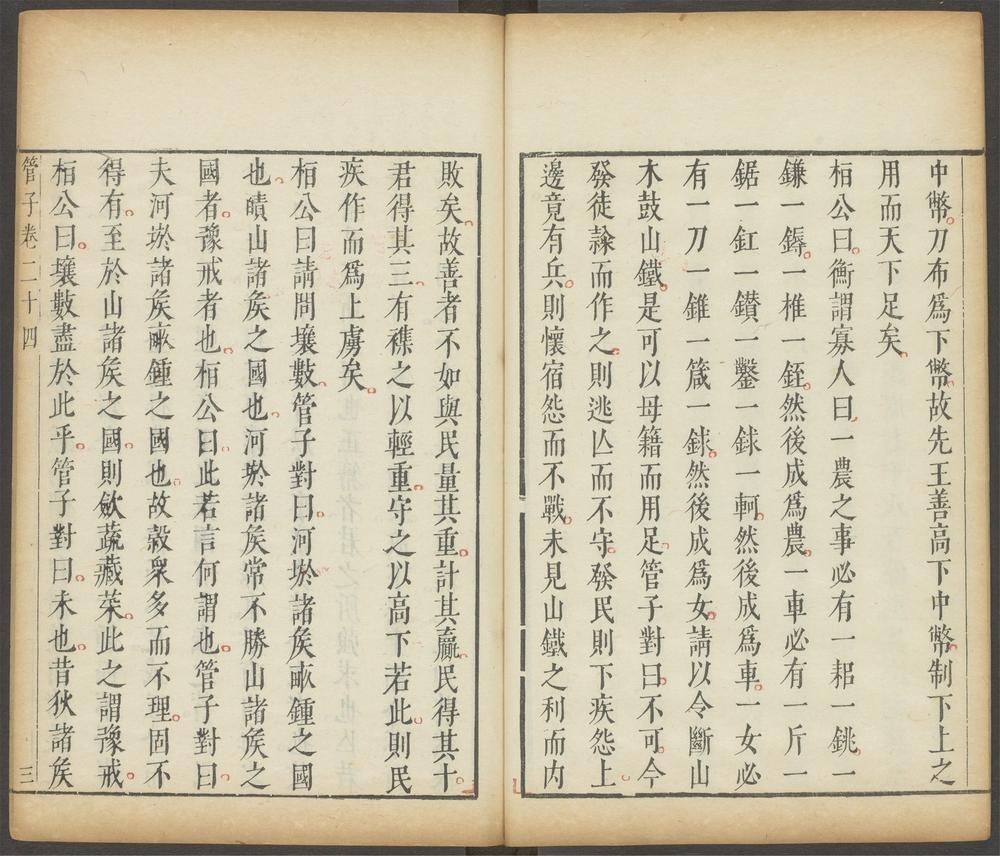 中幣刀布爲下幣故先王善高下中幣制下上之
用而天下足矣
桓公曰衡謂寡人曰一農之事必有一耜一銚一
鎌一鎒一椎一銍然後成爲農一車必有一斤一
鋸一釭一鑽一鑿一銶一軻然後成爲車一女必
有一刀一錐一箴一鉥然後成爲女請以令斷山
木鼓山鐵是可以毋籍而用足管子對曰不可今
發徒隸而作之則逃亾而不守發民則下疾怨上
邊竟有兵則懷宿怨而不戰未見山鐵之利而内
敗矣故善者不如與民量其重計其贏民得其十
君得其三有襍之以輕重守之以高下若此則民
疾作而爲上虜矣
桓公曰請問壤數管子對曰河㳀諸矦畞鍾之國
也磧山諸矦之國也河㳀諸矦常不勝山諸矦之
國者豫戒者也桓公曰此若言何謂也管子對曰
夫河㳀諸矦畞鍾之國也故穀衆多而不理固不
得有至於山諸矦之國則斂蔬藏菜此之謂豫戒
桓公曰壤數盡於此乎管子對曰未也昔狄諸矦
管子卷二十四 三